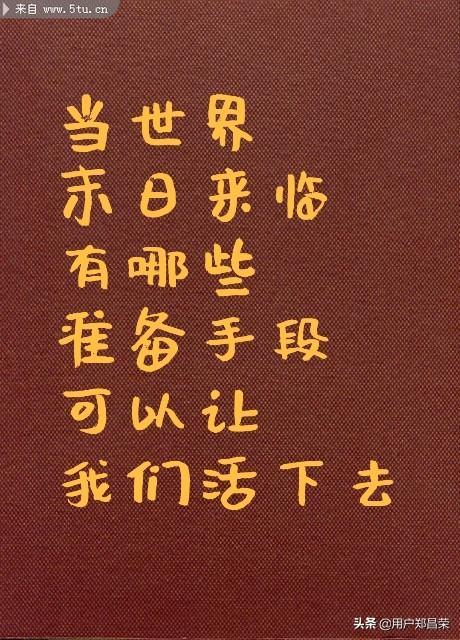 来自 www.5tu.cn
当世界
末日来临
有哪些
准备手段
可以让
我们活下去
头条 @用户郑昌荣